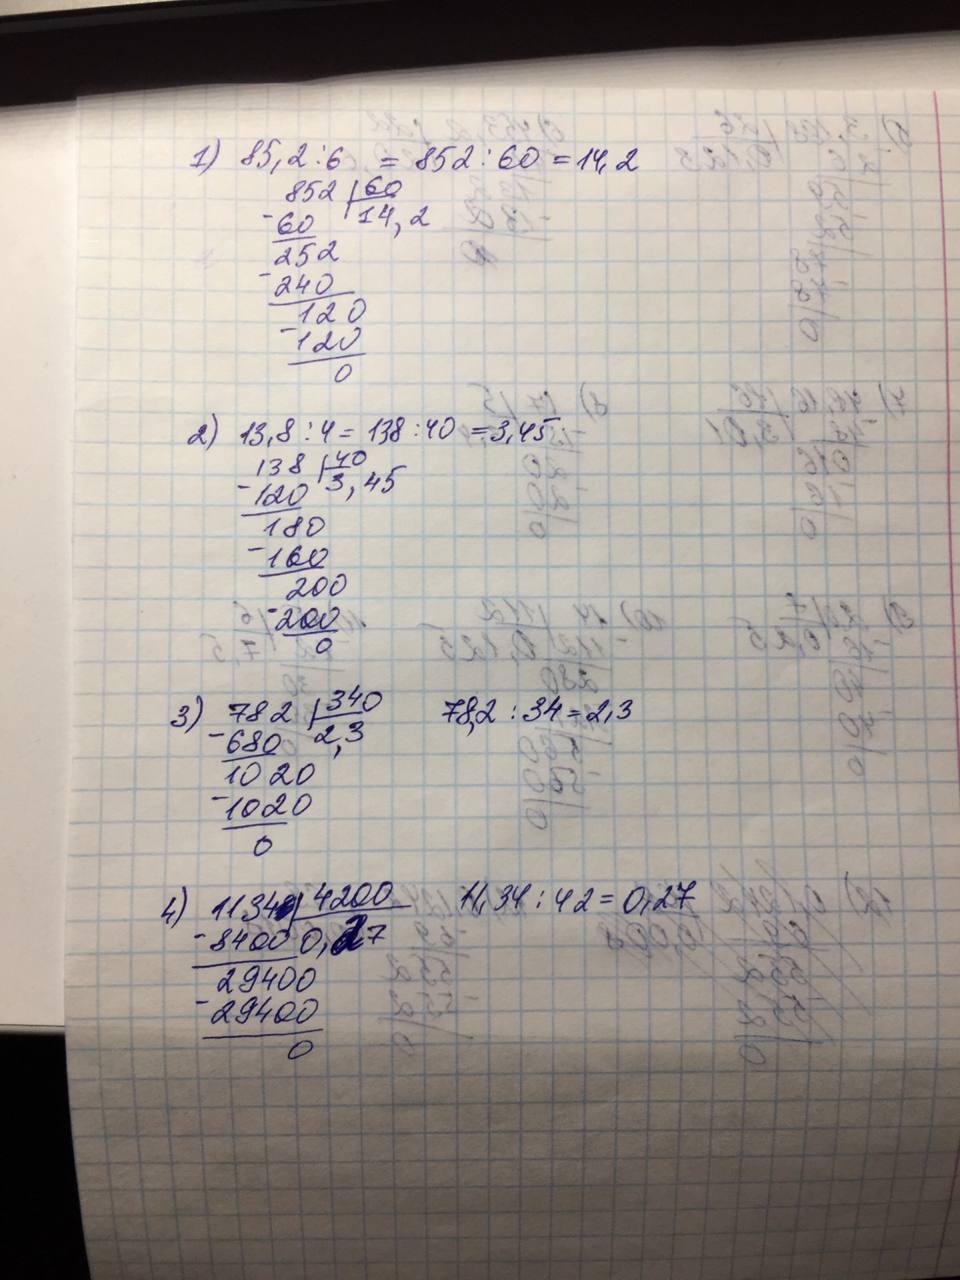 1) 85,2 : 6 = 852 : 60 = 14,2
852 | 60
-60 14,2
252
-240
120
-120
0
2) 13,8 : 4 = 138 : 40 = 3,45
138 | 40
-120 3,45
180
-160
200
-200
0
3) 782 | 340 78,2 : 34 = 2,3
-680 2,3
1020
-1020
0
4) 1134 | 4200 11,34 : 42 = 0,27
-8400 0,27
29400
-29400
0